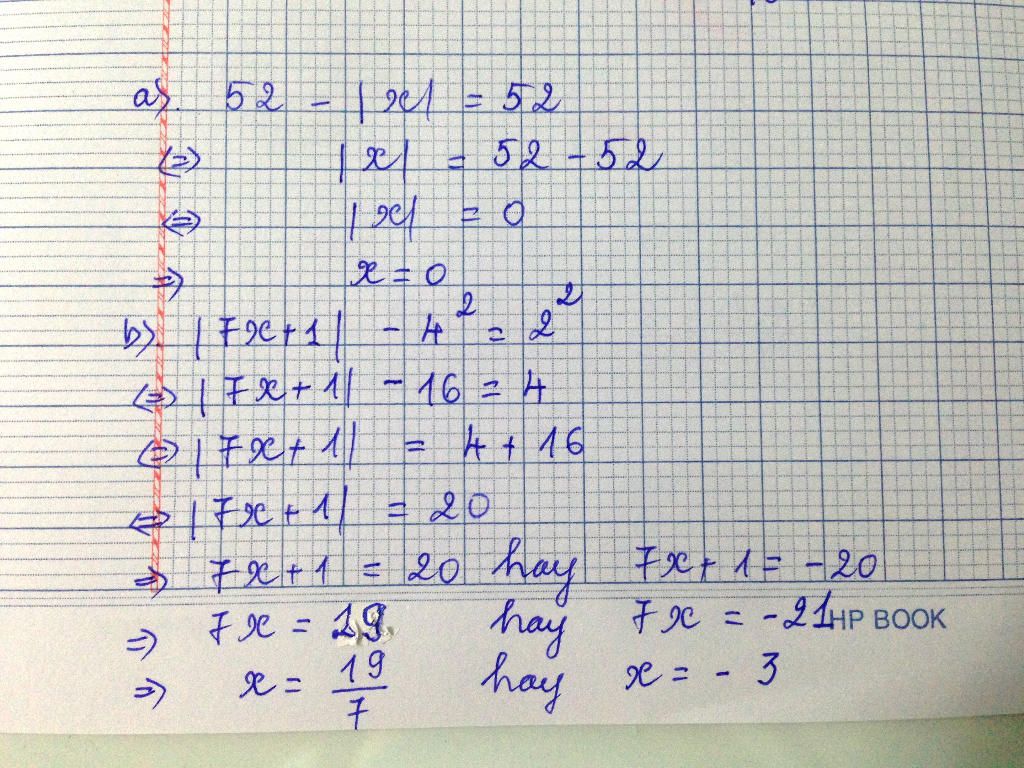 a). 52 - |x| = 52
<=> |x| = 52 - 52
<=> |x| = 0
=> x = 0
b). |7x+1| - 4² = 2²
<=> |7x+1| - 16 = 4
<=> |7x+1| = 4 + 16
<=> |7x+1| = 20
=> 7x+1 = 20 hay 7x+1 = -20
=> 7x = 19 hay 7x = -21 HP BOOK
=> x = 19/7 hay x = -3